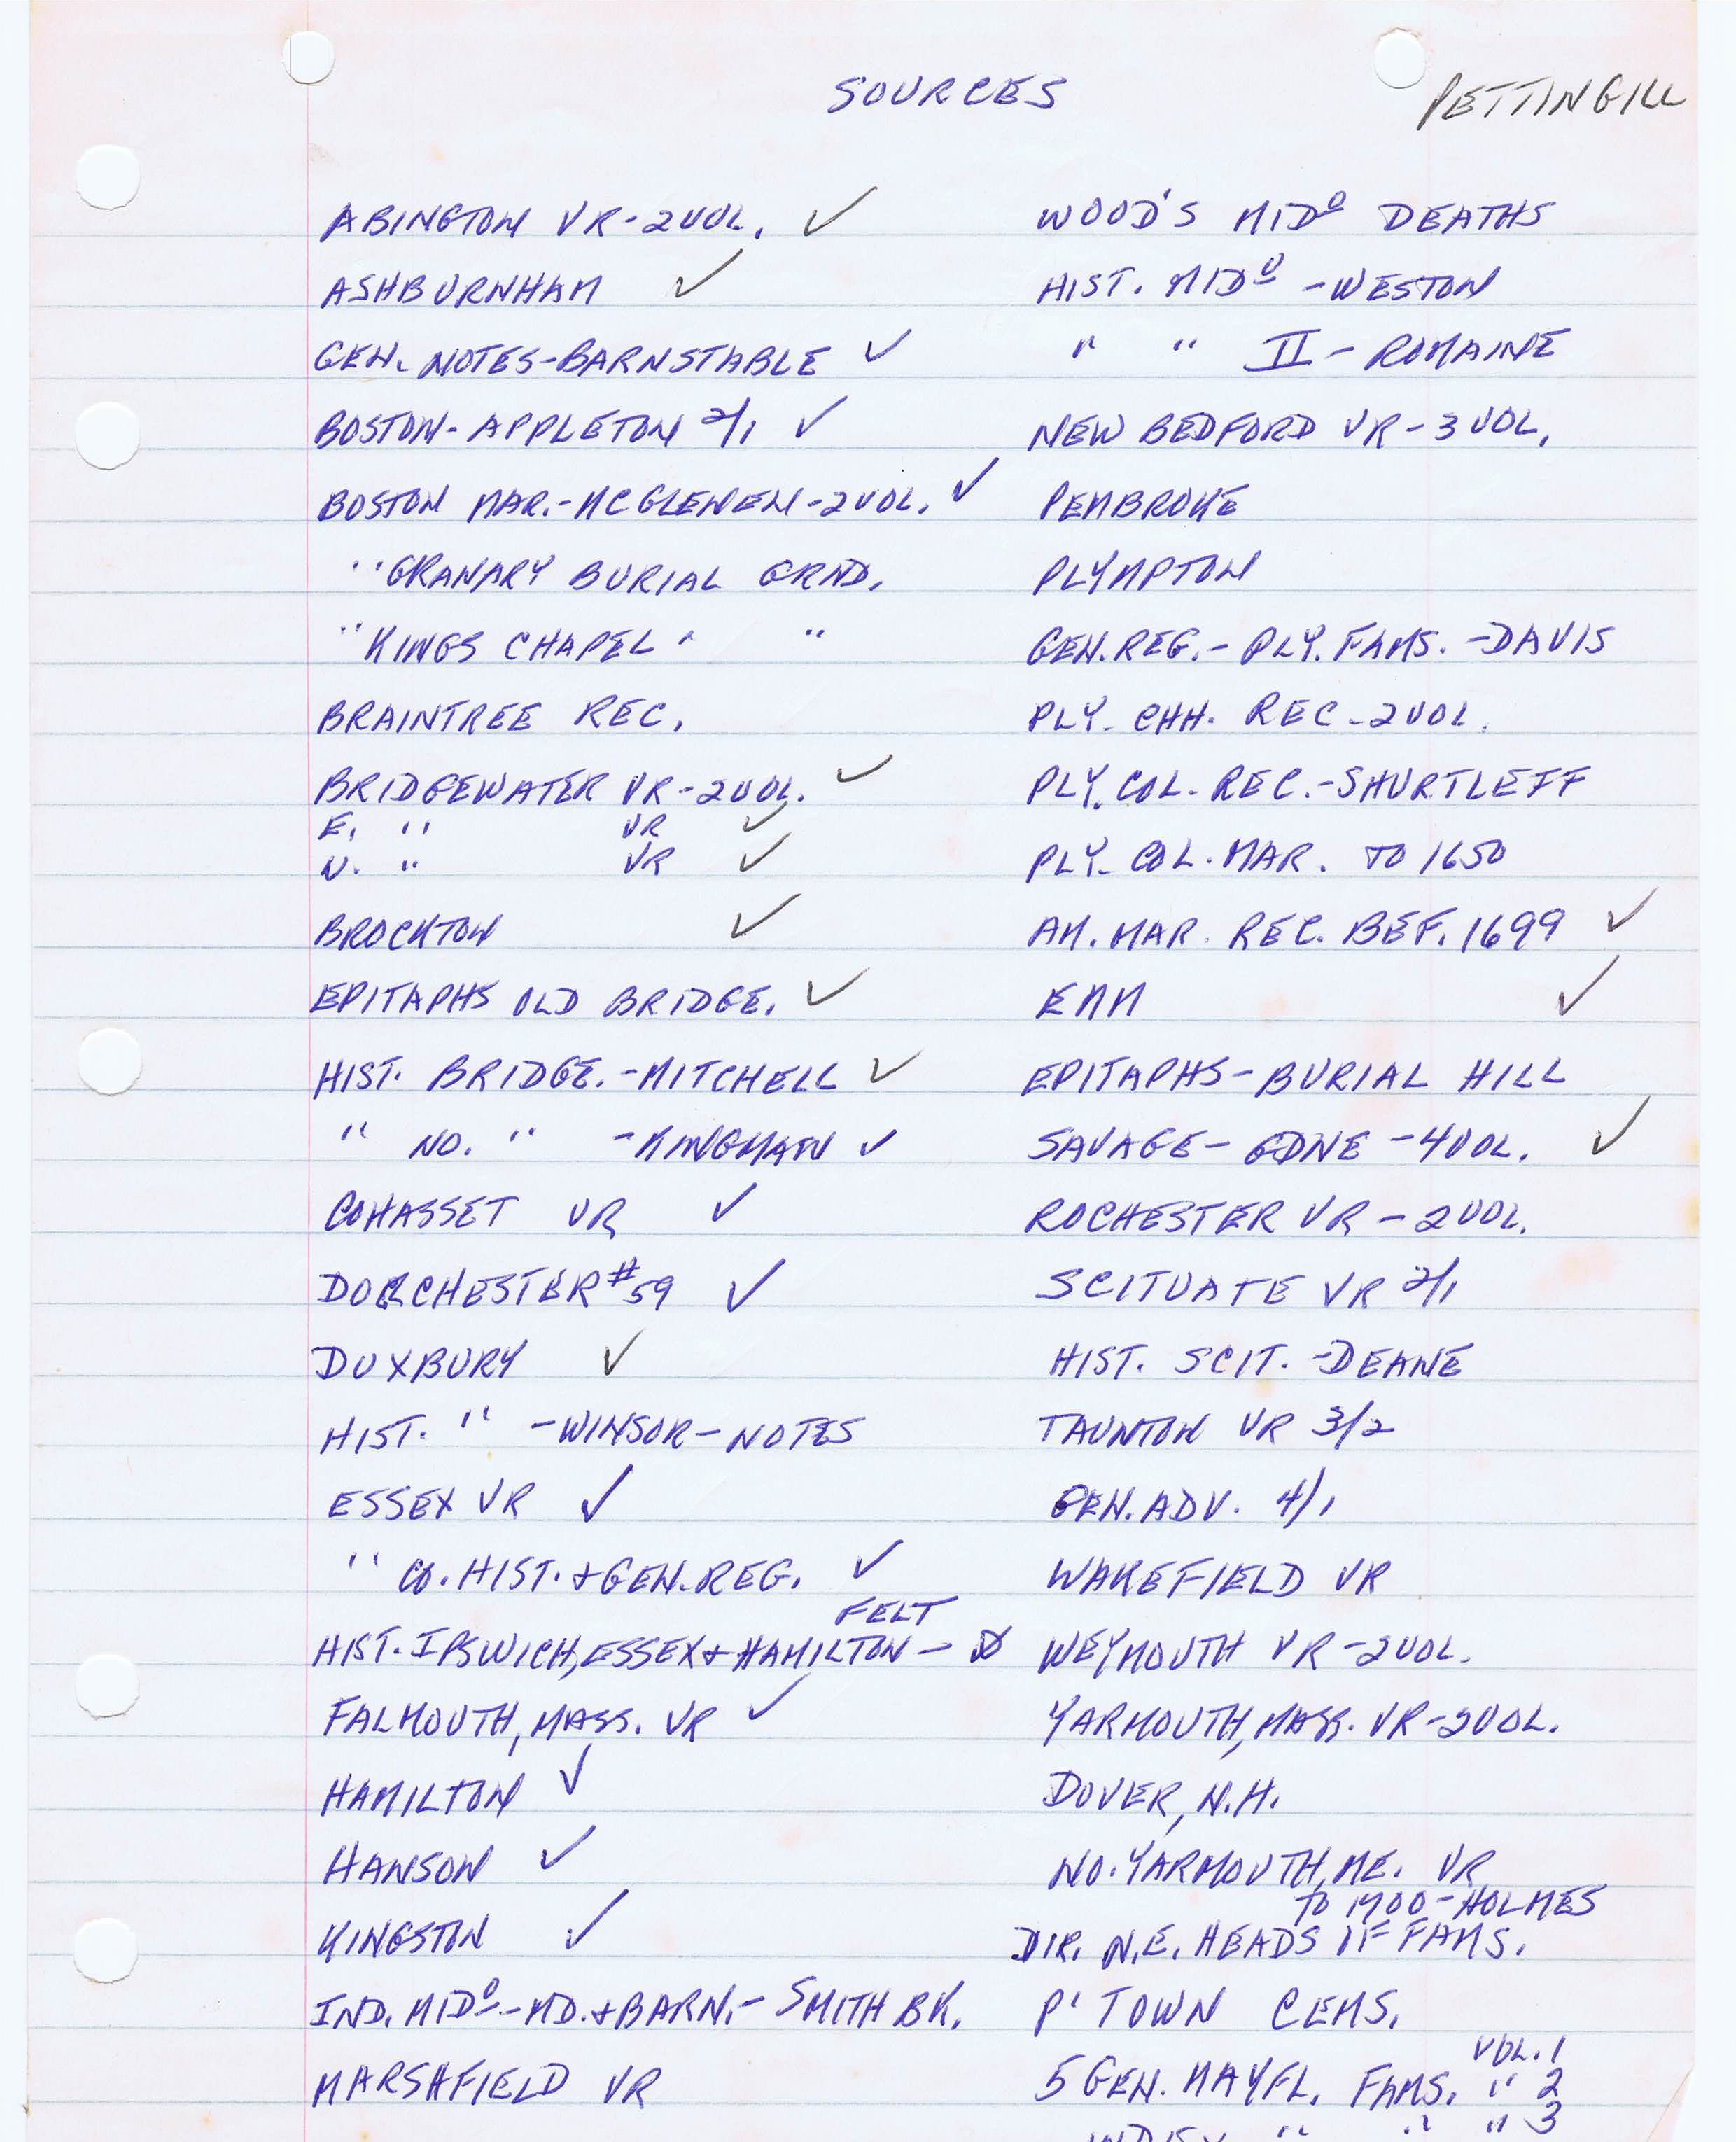 SOURCES
PETTINGILL
ABINGTON VR-2VOL. ✓
ASHBURNHAM ✓
GEN. NOTES-BARNSTABLE ✓
BOSTON-APPLETON 2/1 ✓
BOSTON MAR.-MCGLENEN-2VOL. ✓
" GRANARY BURIAL GRND.
" KINGS CHAPEL " "
BRAINTREE REC.
BRIDGEWATER VR-2VOL. ✓
E. " VR ✓
W. " VR ✓
BROCKTON ✓
EPITAPHS OLD BRIDGE. ✓
HIST. BRIDGE.-MITCHELL ✓
" NO. " -KINGMAN ✓
COHASSET VR ✓
DORCHESTER #59 ✓
DUXBURY ✓
HIST. " -WINSOR-NOTES
ESSEX VR ✓
" CO. HIST. + GEN. REG. ✓
FELT
HIST. IPSWICH, ESSEX + HAMILTON -
FALMOUTH, MASS. VR ✓
HAMILTON ✓
HANSON ✓
KINGSTON ✓
IND. MIDO-MD. + BARN.- SMITH BK.
MARSHFIELD VR
WOOD'S MIDO DEATHS
HIST. MIDO -WESTON
" " II - ROMAINE
NEW BEDFORD VR-3VOL.
PEMBROKE
PLYMPTON
GEN. REG.- PLY. FAMS. -DAVIS
PLY. CHH. REC-2VOL.
PLY. COL. REC.-SHURTLEFF
PLY. COL. MAR. TO 1650
AM. MAR. REC. BEF. 1699 ✓
EMM ✓
EPITAPHS-BURIAL HILL
SAVAGE- GDNE -4VOL. ✓
ROCHESTER VR - 2VOL.
SCITUATE VR 2/1
HIST. SCIT. -DEANE
TAUNTON VR 3/2
GEN. ADV. 4/1
WAKEFIELD VR
WEYMOUTH VR-2VOL.
YARMOUTH, MASS. VR-2VOL.
DOVER, N.H.
NO. YARMOUTH, ME. VR
TO 1700-HOLMES
DIR. N.E. HEADS OF FAMS.
P'TOWN CEMS.
5 GEN. MAYFL. FAMS. VOL. 1
" 2
" " " 3